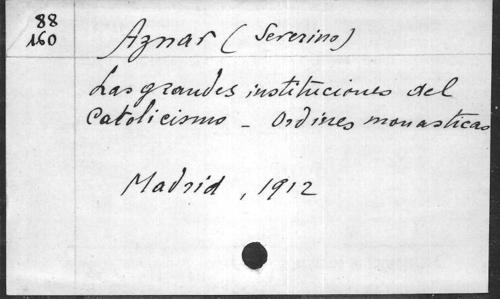 88
160
Aznar (Severino)
Las grandes instituciones del
Catolicismo - Ordines monasticas
Madrid, 1912